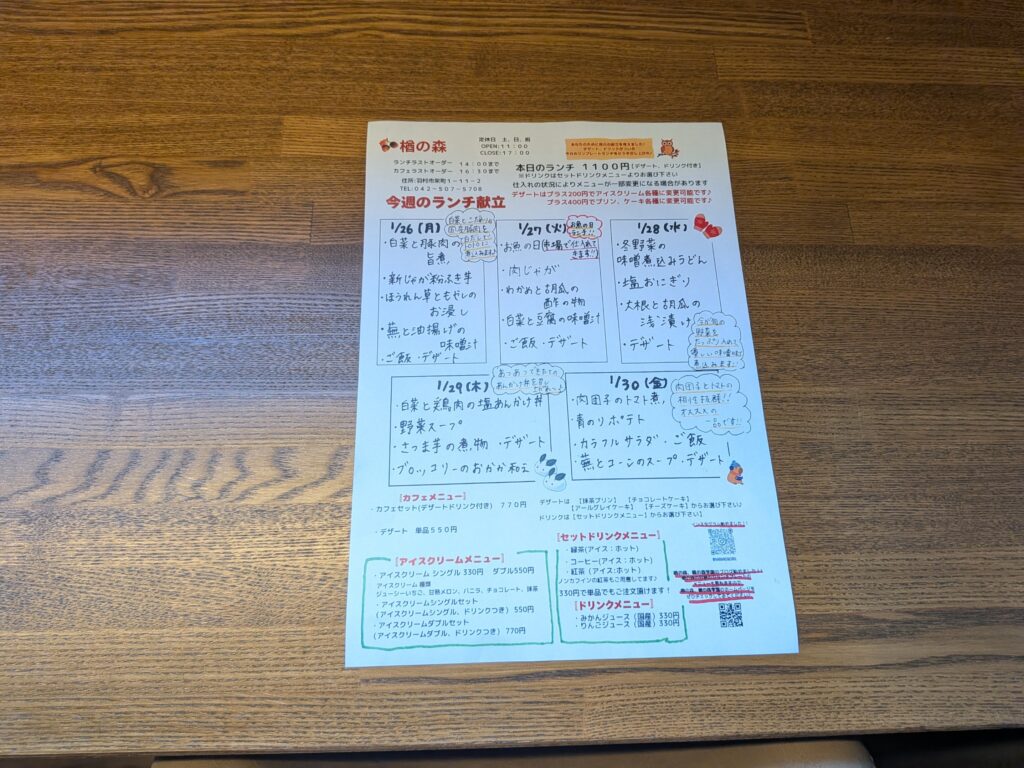 楢の森
定休日 土、日、祝
OPEN:11:00
CLOSE:17:00
ランチラストオーダー 14:00まで
カフェラストオーダー 16:30まで
住所:羽村市栄町1-11-2
TEL:042-507-5708
本日のランチ 1100円 [デザート、ドリンク付き]
※ドリンクはセットドリンクメニューよりお選び下さい
仕入れの状況によりメニューが一部変更になる場合があります
デザートはプラス200円でアイスクリーム各種に変更可能です♪
プラス400円でプリン、ケーキ各種に変更可能です♪
今週のランチ献立
1/26(月)
・白菜と豚肉の
旨煮
・新じゃが粉ふき芋
・ほうれん草ともやしの
お浸し
・蕪と油揚げの
味噌汁
・ご飯・デザート
1/27(火)
お魚の日
ランチ!!
・お魚の日(市場で仕入れて
きます!!)
・肉じゃが
・わかめと胡瓜の
酢の物
・白菜と豆腐の味噌汁
・ご飯・デザート
1/28(水)
・冬野菜の
味噌煮込みうどん
・塩おにぎり
・大根と胡瓜の
浅漬け
・デザート
今が旬の
野菜を
たっぷり入れて
優しい味噌味で
煮込みます
1/29(木)
・白菜と鶏肉の塩あんかけ丼
・野菜スープ
・さつま芋の煮物 ・デザート
・ブロッコリーのおかか和え
あつあつできたての
あんかけ丼を
1/30(金)
・肉団子のトマト煮
・青のりポテト
・カラフルサラダ・ご飯
・蕪とコーンのスープ・デザート
肉団子とトマトの
相性抜群!!
オススメの
一品です!!
[カフェメニュー]
・カフェセット(デザートドリンク付き) 770円
・デザート 単品550円
デザートは [抹茶プリン] [チョコレートケーキ]
[アールグレイケーキ] [チーズケーキ]からお選び下さい♪
ドリンクは[セットドリンクメニュー]からお選び下さい]
[アイスクリームメニュー]
・アイスクリーム シングル 330円 ダブル550円
アイスクリーム 種類
ジューシーいちご、甘熟メロン、バニラ、チョコレート、抹茶
・アイスクリームシングルセット
(アイスクリームシングル、ドリンクつき) 550円
・アイスクリームダブルセット
(アイスクリームダブル、ドリンクつき) 770円
[セットドリンクメニュー]
・緑茶(アイス:ホット)
・コーヒー(アイス:ホット)
・紅茶 (アイス:ホット)
ノンカフェインの紅茶もご用意してます♪
330円で単品でもご注文頂けます!
[ドリンクメニュー]
・みかんジュース(国産)330円
・りんごジュース(国産)330円
インスタグラム始めました!